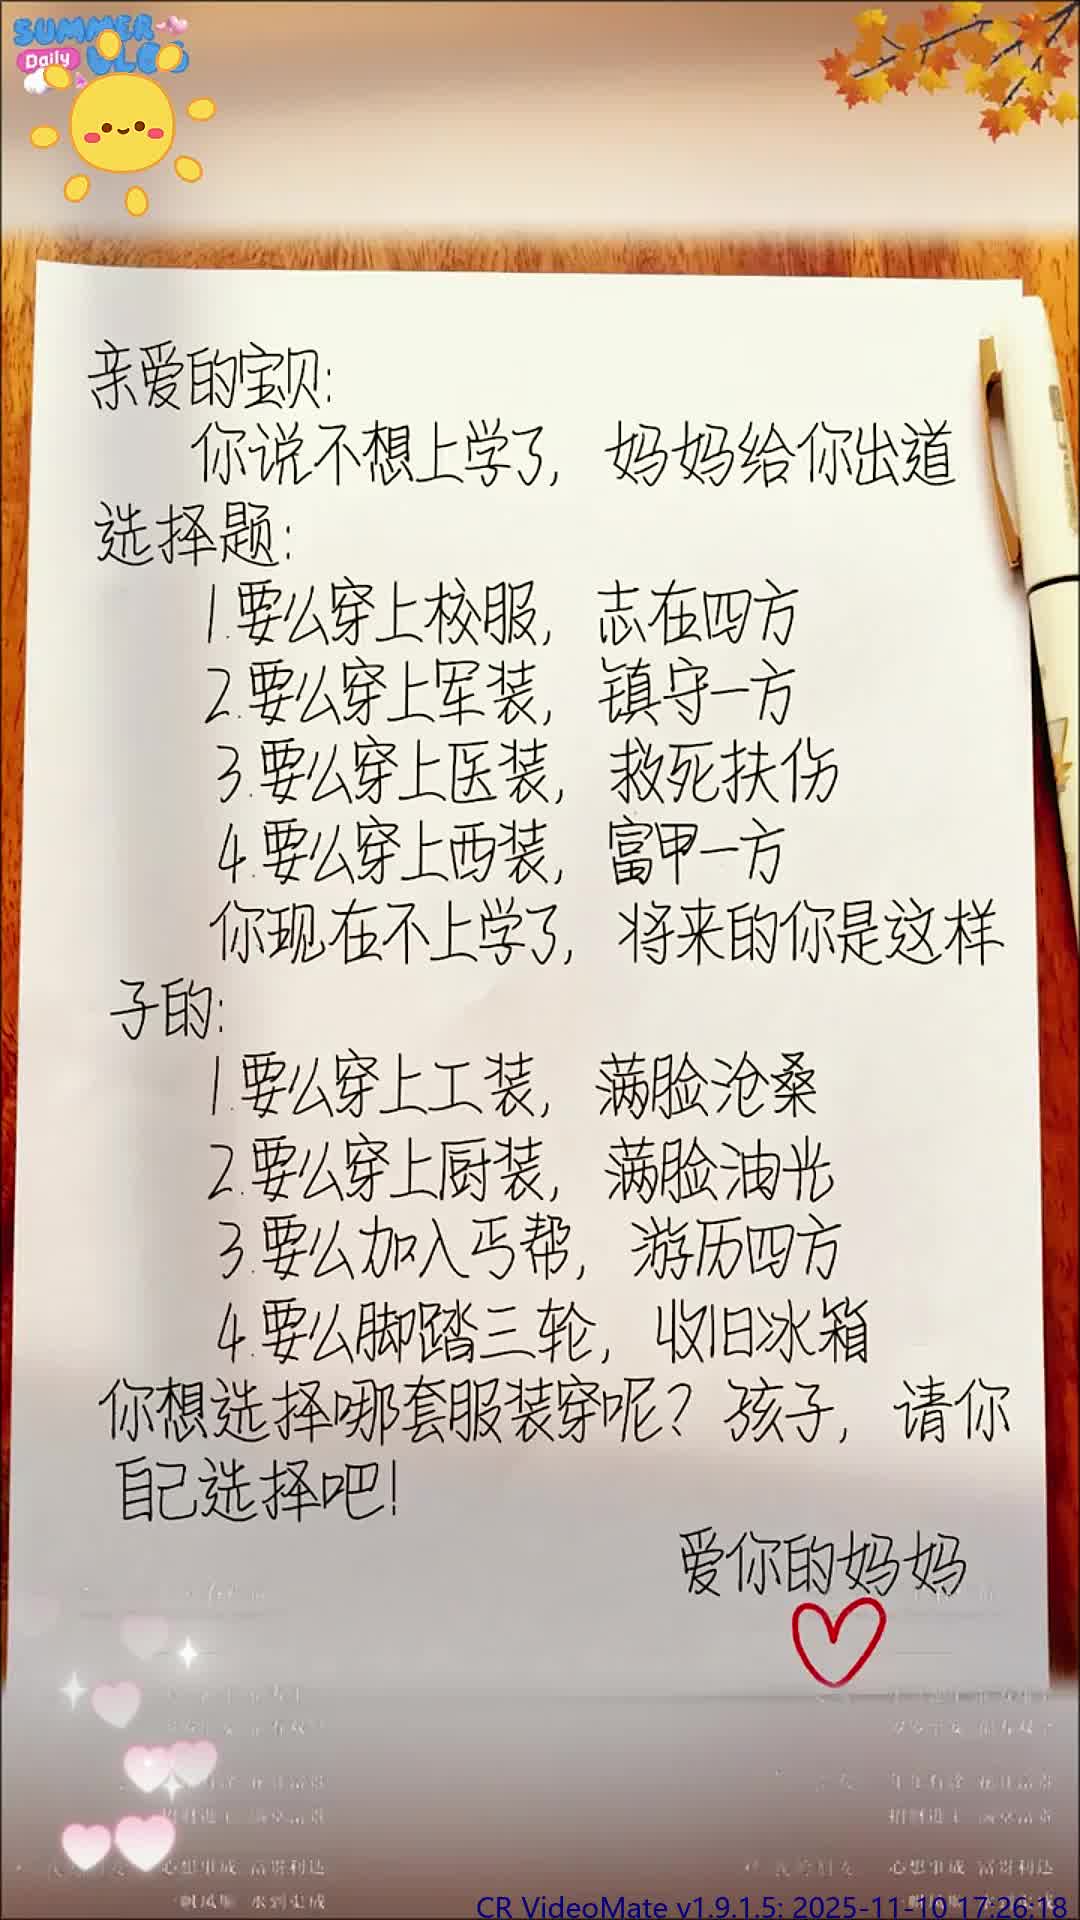 SUMMER
Daily VLOG
亲爱的宝贝:
你说不想上学了, 妈妈给你出道
选择题:
1.要么穿上校服, 志在四方
2.要么穿上军装, 镇守一方
3.要么穿上医装, 救死扶伤
4.要么穿上西装, 富甲一方
你现在不上学了, 将来的你是这样
子的:
1.要么穿上工装, 满脸沧桑
2.要么穿上厨装, 满脸油光
3.要么加入丐帮, 游历四方
4.要么脚踏三轮, 收旧冰箱
你想选择哪套服装穿呢? 孩子, 请你
自己选择吧!
爱你的妈妈
心想事成 富贵利达 心想事成 富贵利达
CR VideoMate v1.9.1.5: 2025-11-10 17:26:18